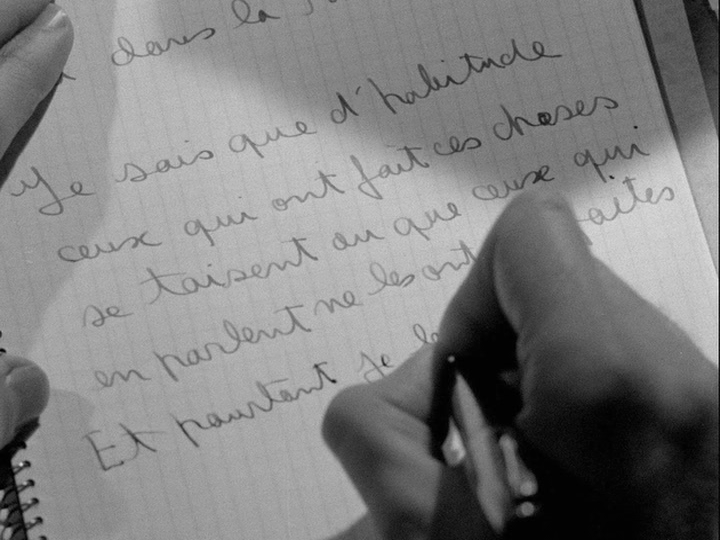 dans la
Je sais que d'habitude
ceux qui ont fait ces choses
se taisent ou que ceux qui
en parlent ne les ont aites
Et pourtant je le